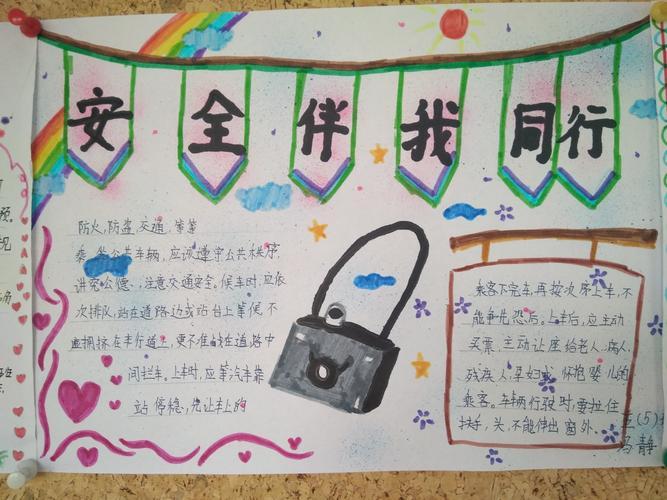 安全伴我同行
防火,防盗,交通,等等
乘坐公共车辆,应该遵守公共秩序,
讲究公德,注意交通安全。候车时,应依
次排队,站在道路边或站台上等候,不
拥挤在车行道上,更不准站在道路中
间拦车。上车时,应等汽车靠
站停稳,先让车上的
乘客下完车,再按次序上车,不
能争先恐后。上车后,应主动
买票,主动让座给老人、病人、
残疾人、孕妇或怀抱婴儿的
乘客。车辆行驶时,要拉住
扶手,头、不能伸出窗外。
五(5)
马静